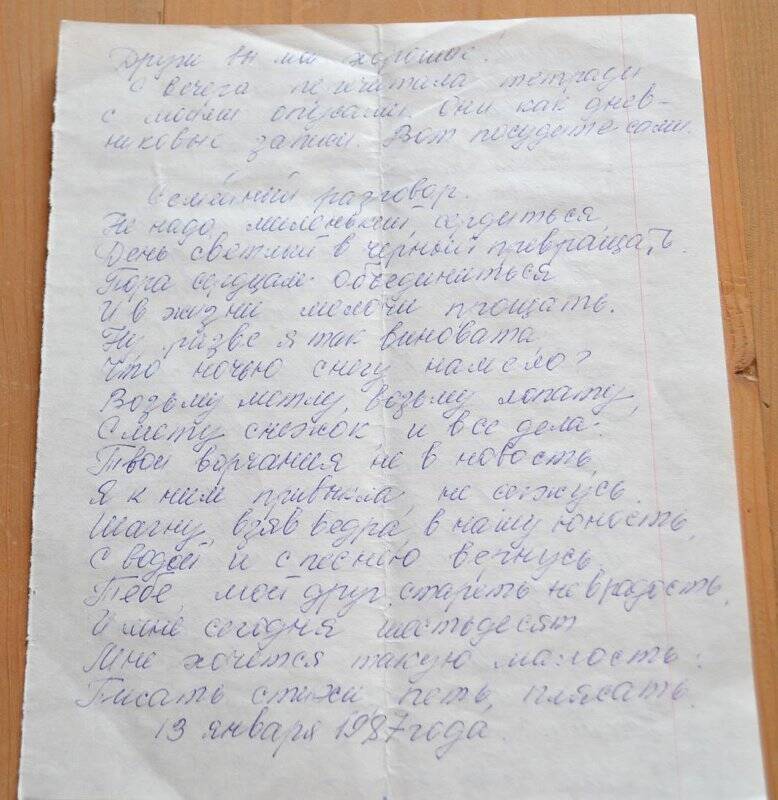 Други вы мои хорошие!
С вечера перечитала тетради
с моими опусами. Они как днев-
никовые записи. Вот посудите сами.
Семейный разговор.
Не надо, миленький, сердиться,
День светлый в чёрный превращать.
Пора сердцам объединиться
И в жизни мелочи прощать.
Ну разве я так виновата,
Что ночью снегу намело?
Возьму метлу, возьму лопату,
Смету снежок и все дела.
Твои ворчания не в новость,
Я к ним привыкла, не сержусь.
Шагну, взяв вёдра, в нашу юность,
С водой и с песнею вернусь.
Тебе, мой друг, стареть не в радость,
И мне сегодня шестьдесят
Мне хочется такую малость:
Писать стихи, петь, плясать.
13 января 1987 года.